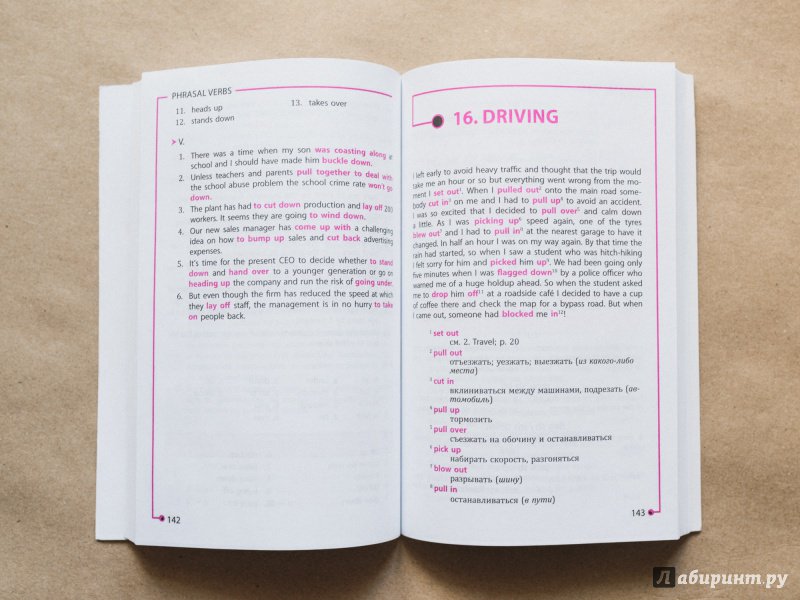 PHRASAL VERBS
11. heads up
12. stands down
13. takes over
V.
1. There was a time when my son was coasting along at
school and I should have made him buckle down.
2. Unless teachers and parents pull together to deal with
the school abuse problem the school crime rate won't go
down.
3. The plant has had to cut down production and lay off 200
workers. It seems they are going to wind down.
4. Our new sales manager has come up with a challenging
idea on how to bump up sales and cut back advertising
expenses.
5. It's time for the present CEO to decide whether to stand
down and hand over to a younger generation or go on
heading up the company and run the risk of going under.
6. But even though the firm has reduced the speed at which
they lay off staff, the management is in no hurry to take
on people back.
142
16. DRIVING
I left early to avoid heavy traffic and thought that the trip would
take me an hour or so but everything went wrong from the mo-
ment I set out¹. When I pulled out² onto the main road some-
body cut in³ on me and I had to pull up⁴ to avoid an accident.
I was so excited that I decided to pull over⁵ and calm down
a little. As I was picking up⁶ speed again, one of the tyres
blew out⁷ and I had to pull in⁸ at the nearest garage to have it
changed. In half an hour I was on my way again. By that time the
rain had started, so when I saw a student who was hitch-hiking
I felt sorry for him and picked him up⁹. We had been going only
five minutes when I was flagged down¹⁰ by a police officer who
warned me of a huge holdup ahead. So when the student asked
me to drop him off¹¹ at a roadside café I decided to have a cup
of coffee there and check the map for a bypass road. But when
I came out, someone had blocked me in¹²!
¹ set out
см. 2. Travel; p. 20
² pull out
отъезжать; уезжать; выезжать (из какого-либо
места)
³ cut in
вклиниваться между машинами, подрезать (ав-
томобиль)
⁴ pull up
тормозить
⁵ pull over
съезжать на обочину и останавливаться
⁶ pick up
набирать скорость, разгоняться
⁷ blow out
разрывать (шину)
⁸ pull in
останавливаться (в пути)
143
Лабиринт.ру